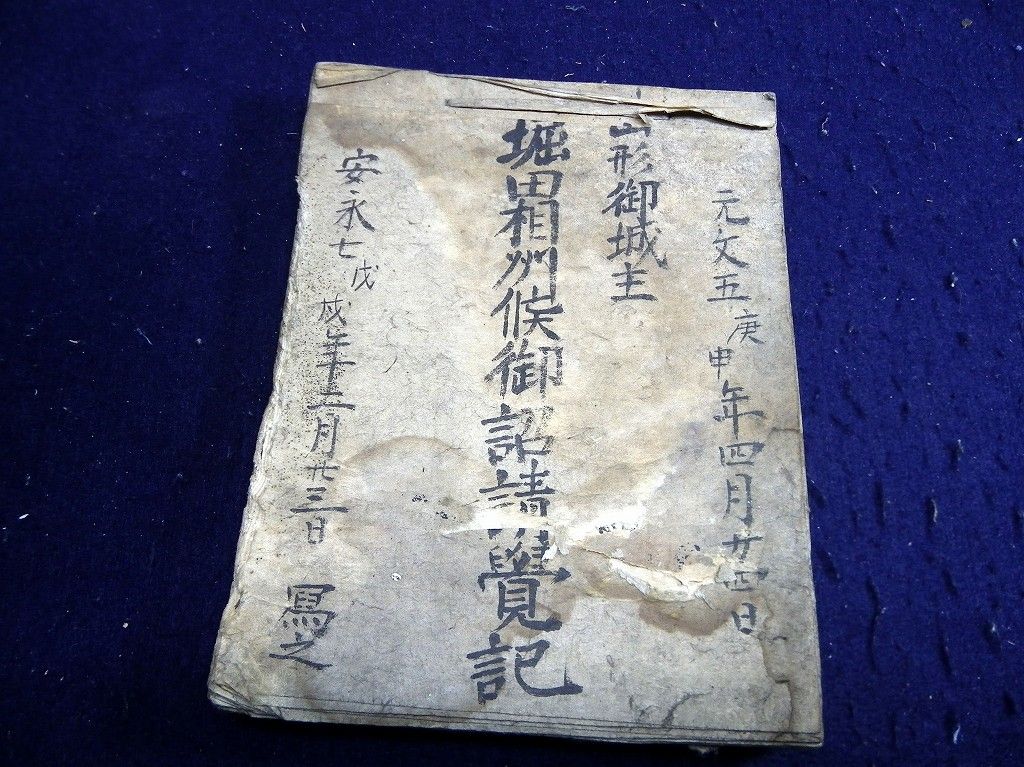 元文五庚申年四月廿四日
山形御城主
堀田相州候御詔請覺記
安永七戊戌年二月廿三日 寫之